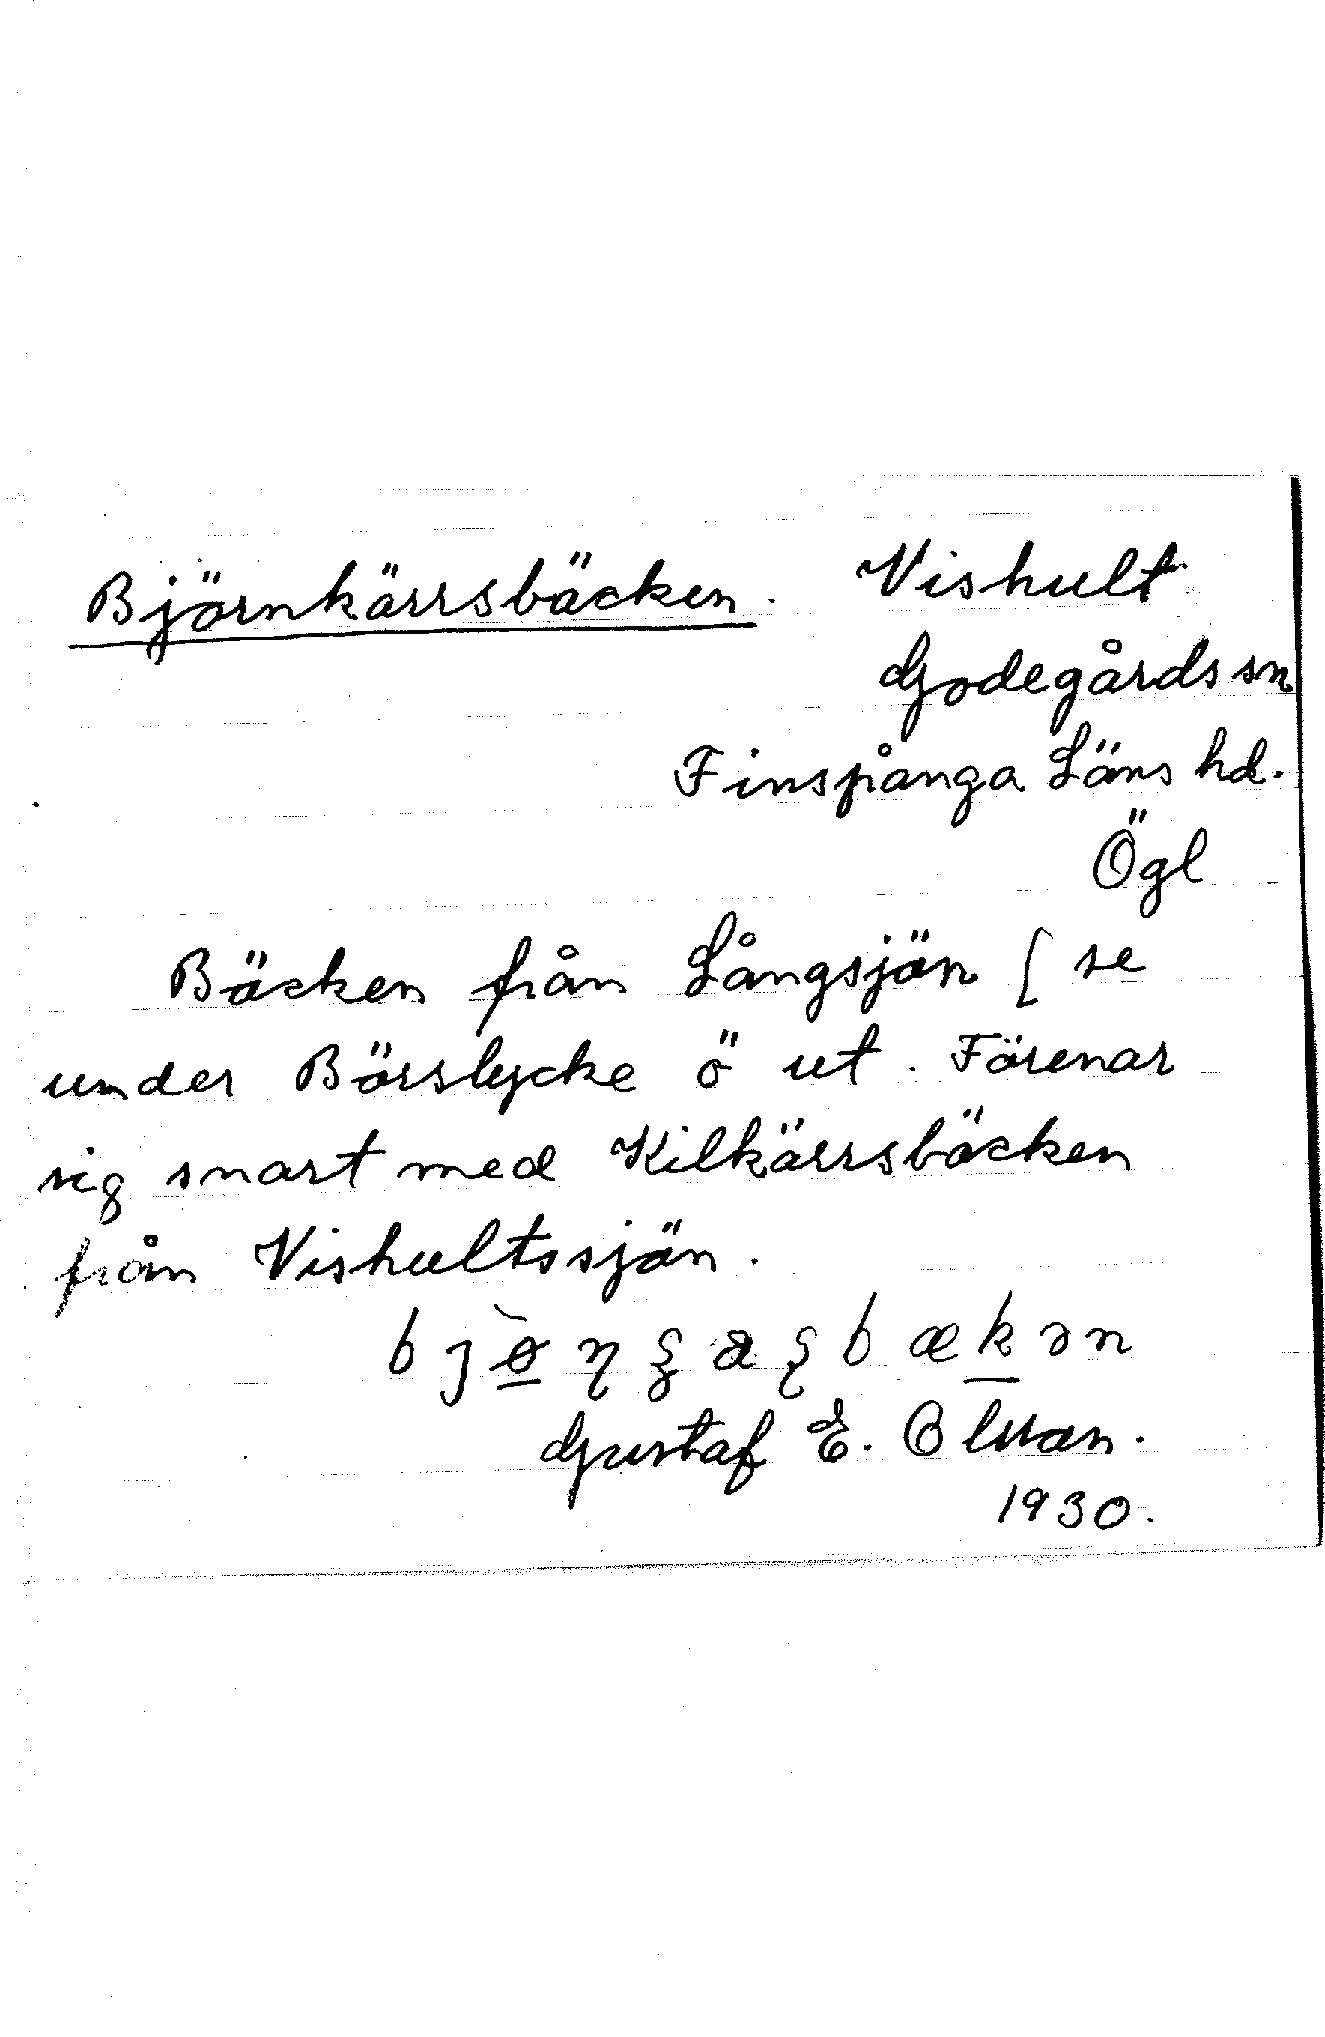 Björnkärrsbäcken. Vishult
Godegårds sn
Finspånga Läns hd.
Ögl
Bäcken från Långsjön [ se
under Börslycke ö ut. Förenar
sig snart med Kilkärrsbäcken
från Vishultssjön.
Gustaf E. Olsson.
1930.